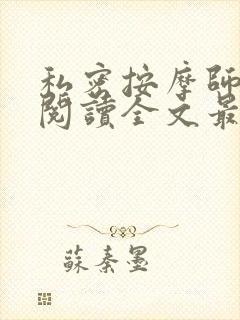 私密按摩師
閱讀全文最
蘇秦墨